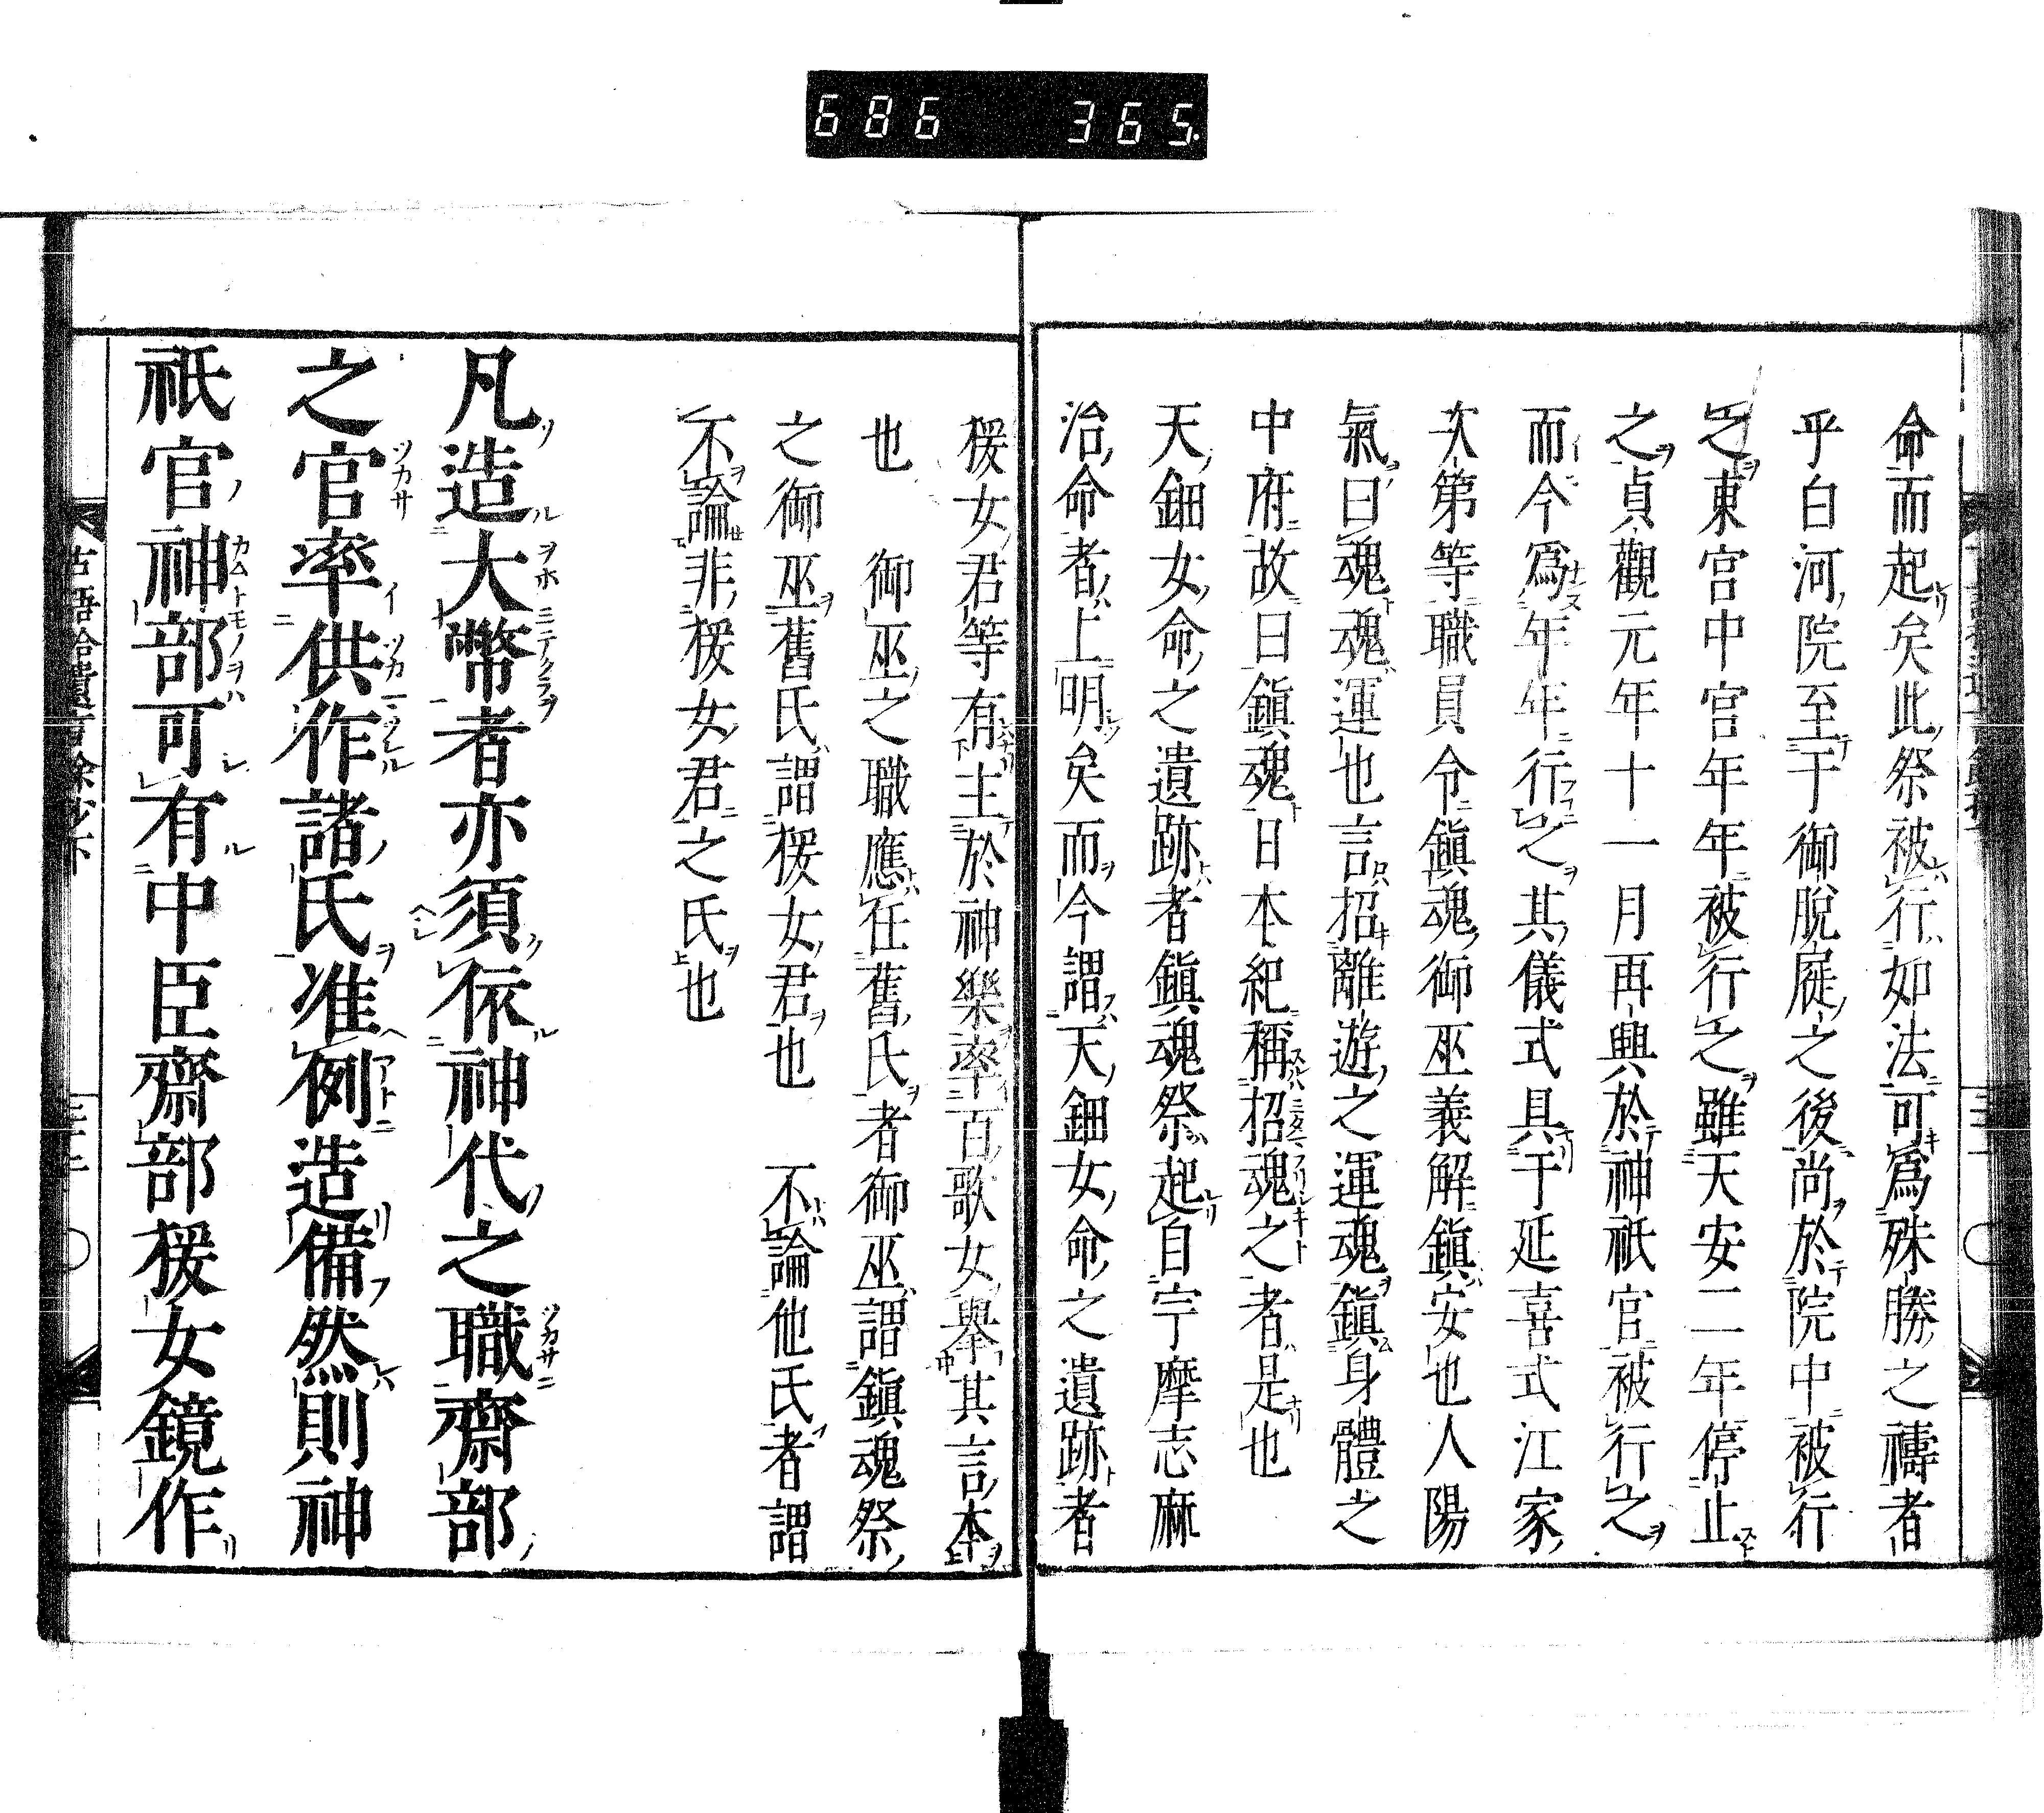 686 365
命而起矣此祭被行如法可為殊勝之禱者
乎白河院至于御脫屣之後尚於院中被行
之東宮中宮年年被行之雖天安二年停止
之貞觀元年十一月再興於神祇官被行之
而今爲年年行之其儀式具于延喜式江家
次第等職員令鎮魂御巫義解鎮安也人陽
氣曰魂魂運也言招離遊之運魂鎮身體之
中府故曰鎮魂日本紀稱招魂之者是也
天鈿女命之遺跡者鎮魂祭起自宇摩志麻
治命者上明矣而今謂天鈿女命之遺跡者
猨女君等有主於神樂率百歌女舉其言本
也 御巫之職應任舊氏者御巫謂鎮魂祭
之御巫舊氏謂猨女君也 不論他氏者謂
不論非猨女君之氏也
凡造大幣者亦須依神代之職齋部
之官率供作諸氏准例造備然則神
祇官神部可有中臣齋部猨女鏡作
古語拾遺言餘抄下